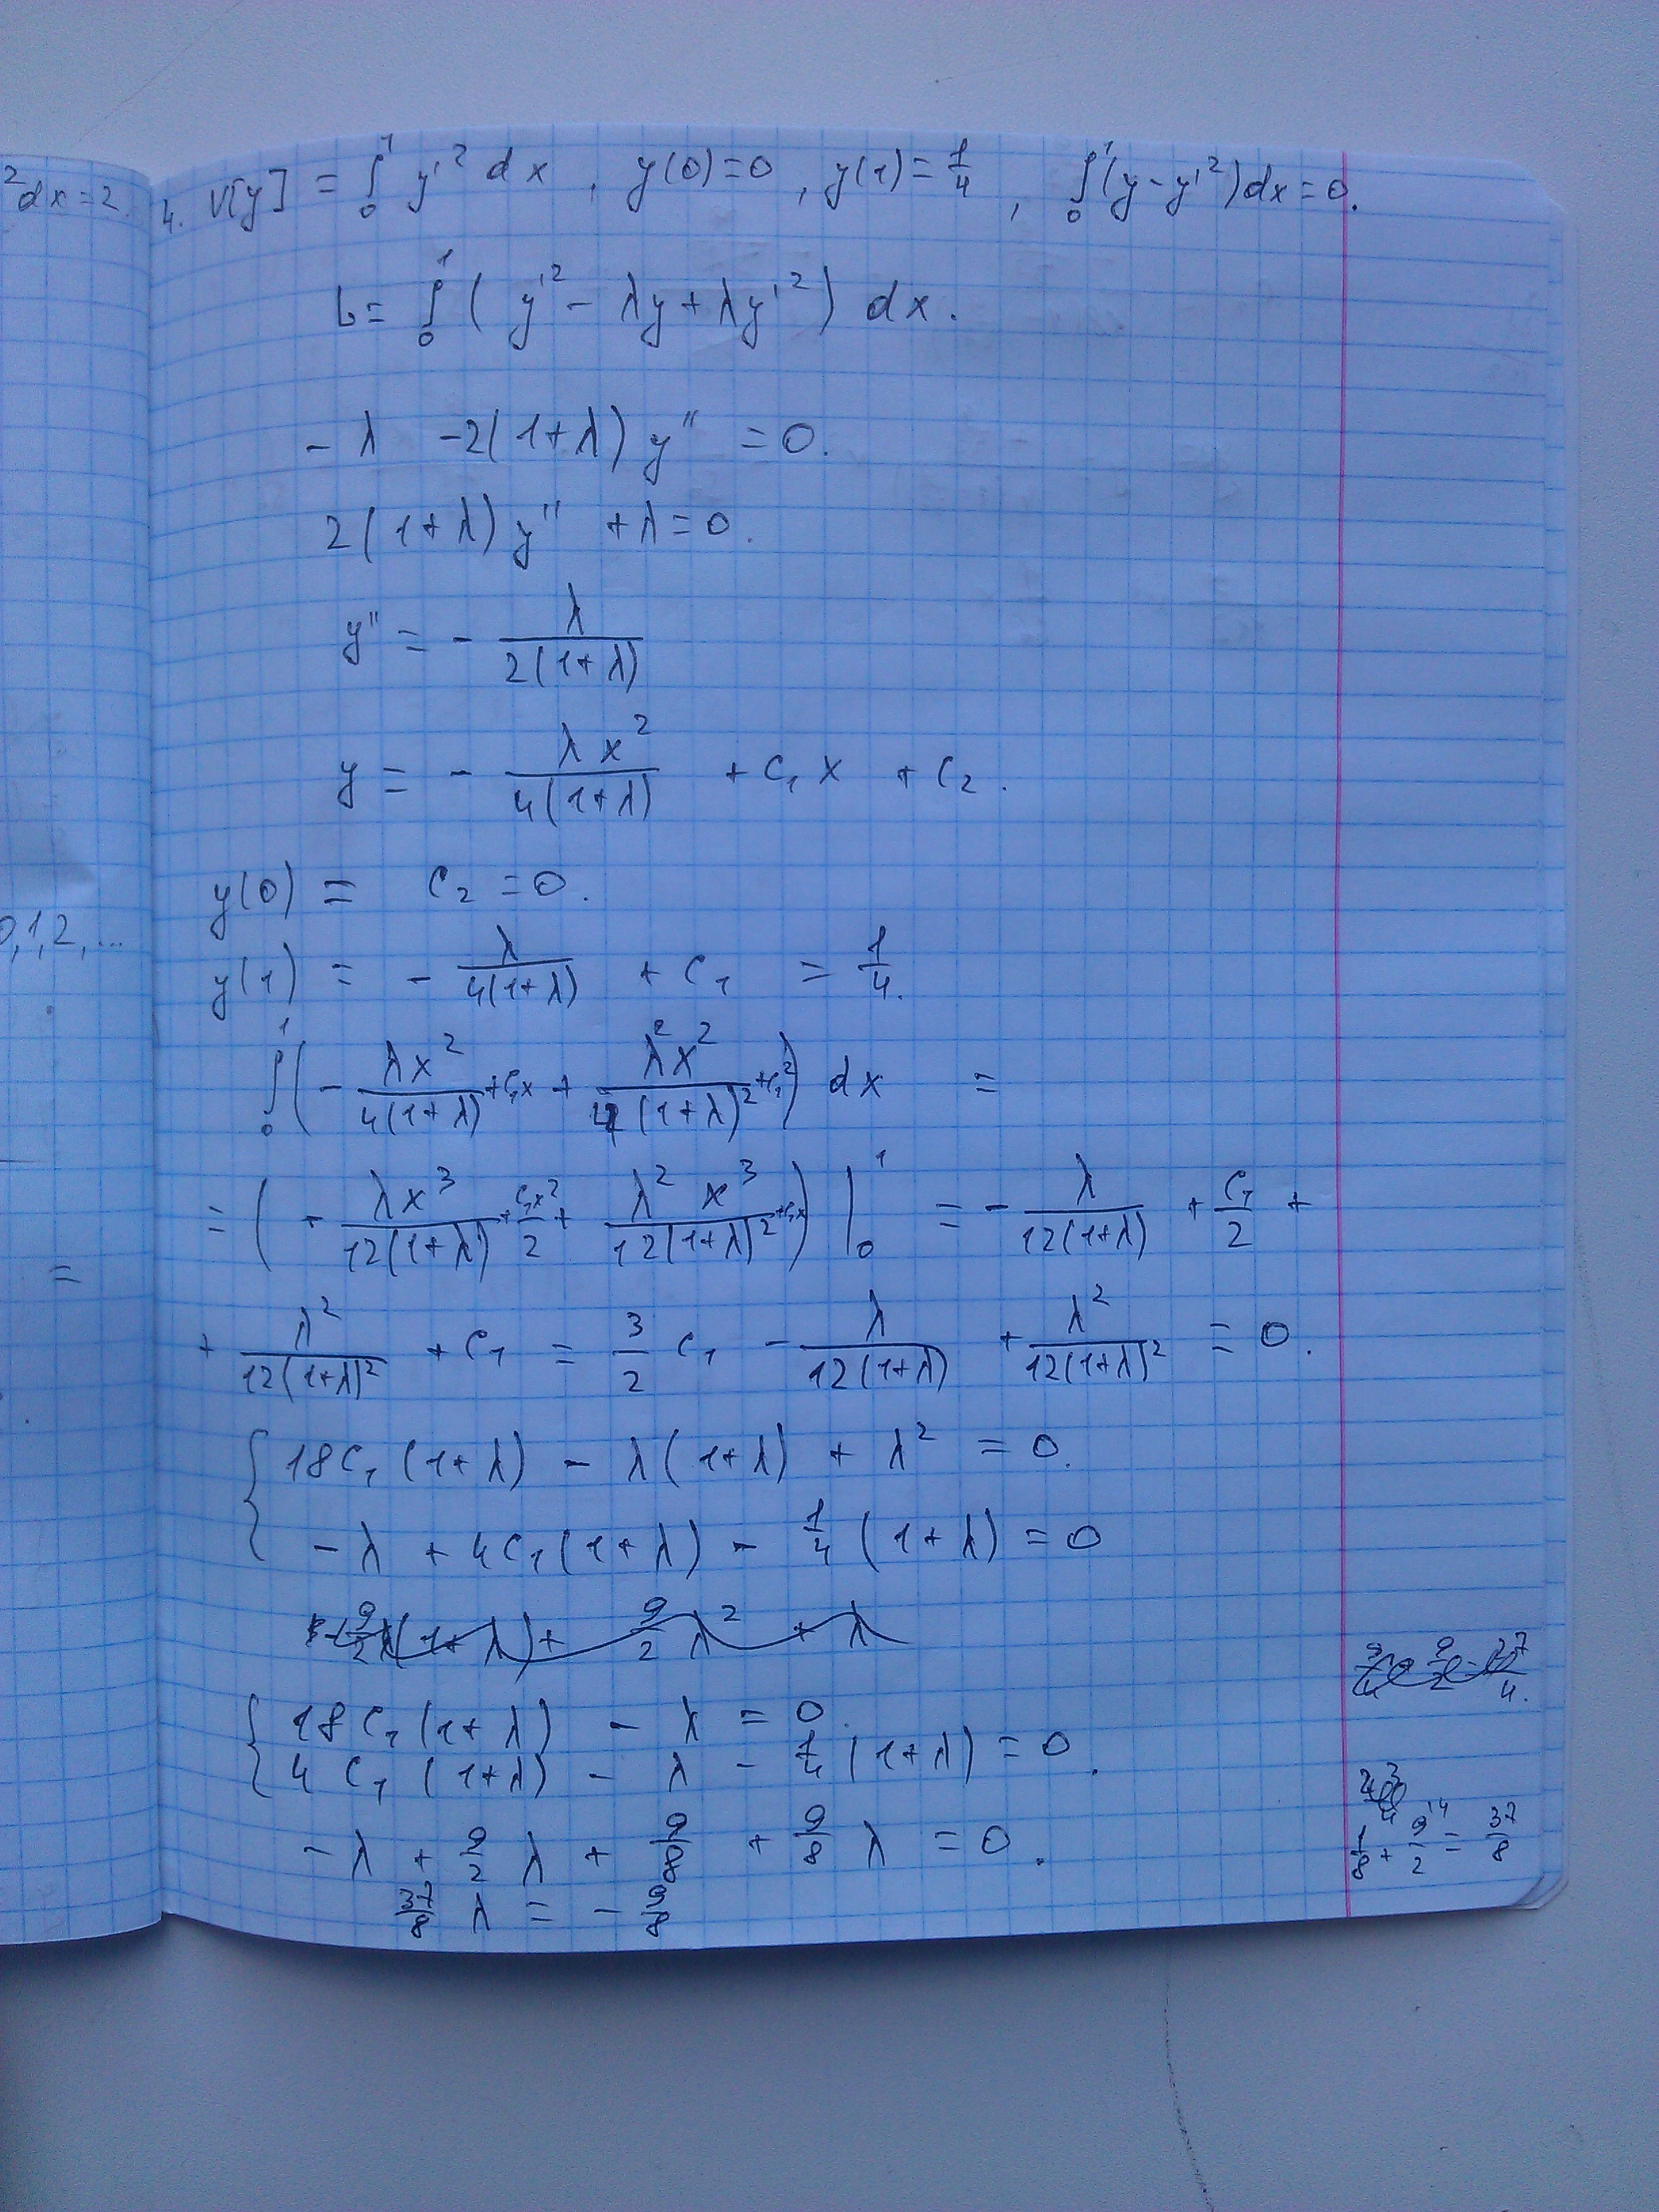 ²dx=2.
0,1,2,...
=
4. V[y] = ∫₀¹ y'² dx , y(0)=0 , y(1)=1/4 , ∫₀¹(y-y'²)dx=0.
L= ∫₀¹ ( y'² - λy + λy'² ) dx.
-λ -2(1+λ) y'' =0.
2(1+λ) y'' +λ=0.
y'' = - λ/(2(1+λ))
y = - λx²/(4(1+λ)) + C₁x + C₂.
y(0) = C₂ =0.
y(1) = - λ/(4(1+λ)) + C₁ = 1/4.
∫₀¹(- λx²/(4(1+λ)) +C₁x + λ²x²/(4(1+λ)²) +C₁²) dx =
= ( - λx³/(12(1+λ)) + C₁x²/2 + λ²x³/(12(1+λ)²) +C₁x) |₀¹ = - λ/(12(1+λ)) + C₁/2 +
+ λ²/(12(1+λ)²) + C₁ = 3/2 C₁ - λ/(12(1+λ)) + λ²/(12(1+λ)²) = 0.
{ 18C₁(1+λ) - λ(1+λ) + λ² = 0.
-λ + 4C₁(1+λ) - 1/4 (1+λ) = 0
9/2 λ(1+λ)+ 9/2 λ² + λ
{ 18C₁(1+λ) - λ = 0.
4C₁(1+λ) - λ - 1/4 (1+λ) = 0.
-λ + 9/2 λ + 9/8 + 9/8 λ = 0.
1/8 + 9/2 = 37/8
37/8 λ = - 9/8